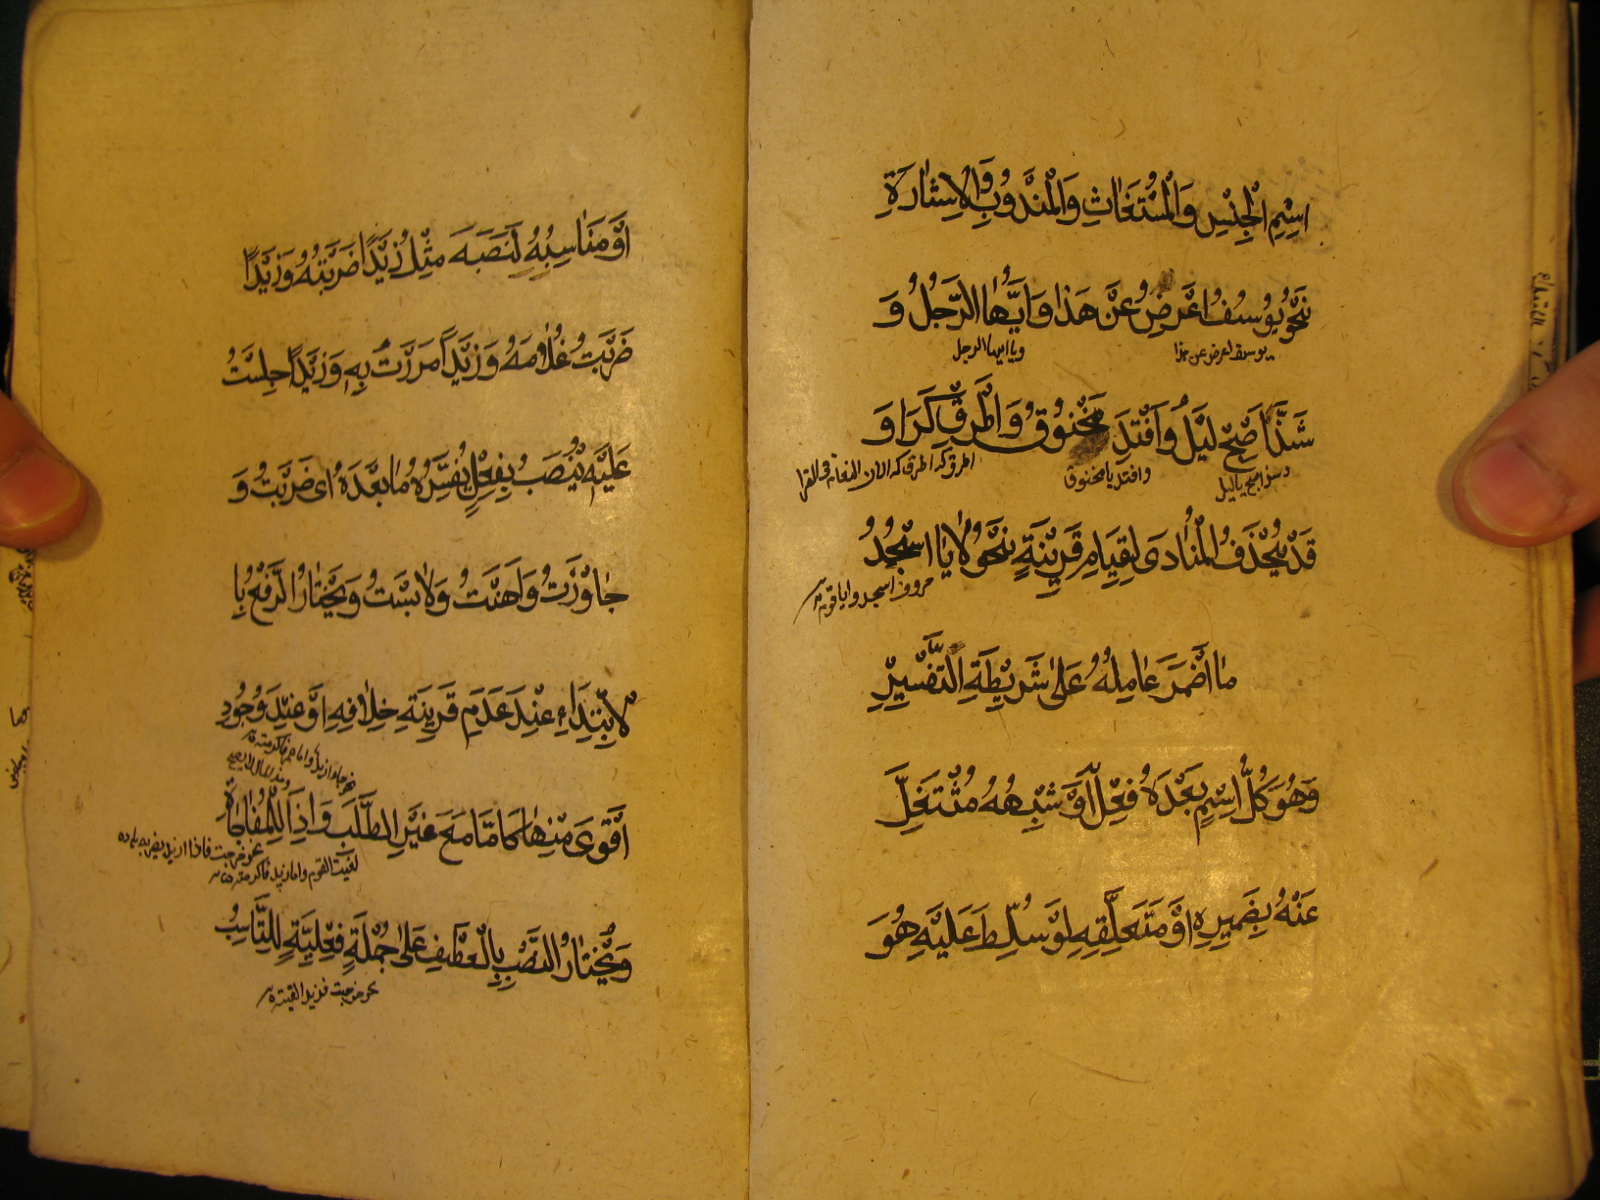 اسْمِ الْجِنْسِ وَالْمُسْتَغَاثِ وَالْمَنْدُوبِ وَالْاِشَارَةِ
نَحْوُ يُوسُفُ اَعْرِضْ عَنْ هَذَا وَاَيُّهَا الرَّجُلُ وَ
يوسف اعرض عن هذا
ويا ايها الرجل
شَذَّ اَصْبِحْ لَيْلُ وَافْتَدِ مَخْنُوقُ وَاَطْرِقْ كَرَا وَ
وافتد يا مخنوق
قَدْ يُحْذَفُ الْمُنَادَى لِقِيَامِ قَرِيْنَةٍ نَحْوُ اَلَا يَا اسْجُدُ
مَا اُضْمِرَ عَامِلُهُ عَلَى شَرِيْطَةِ التَّفْسِيْرِ
وَهُوَ كُلُّ اسْمٍ بَعْدَهُ فِعْلٌ اَوْ شِبْهُهُ مُشْتَغِلٌ
عَنْهُ بِضَمِيرِهِ اَوْ مُتَعَلِّقِهِ لَوْ سُلِّطَ عَلَيْهِ هُوَ
اَوْ مُنَاسِبُهُ لَنَصَبَهُ مِثْلُ زَيْدًا ضَرَبْتُهُ وَزَيْدًا
ضَرَبْتُ غُلَامَهُ وَزَيْدًا مَرَرْتُ بِهِ وَزَيْدًا حُبِسْتُ
عَلَيْهِ يُنْصَبُ بِفِعْلٍ يُفَسِّرُهُ مَا بَعْدَهُ اى ضَرَبْتُ وَ
جَاوَزْتُ وَاَهَنْتُ وَلَابَسْتُ وَيُخْتَارُ الرَّفْعُ بِا
لْاِبْتِدَاءِ عِنْدَ عَدَمِ قَرِينَةِ خِلَافِهِ اَوْ عِنْدَ وُجُودِ
اَقْوَى مِنْهَا كَاَمَّا مَعَ غَيْرِ الطَّلَبِ وَاِذَا لِلْمُفَاجَاةِ
لقيت القوم واما زيد فاكرمته
وَيُخْتَارُ النَّصْبُ بِالْعَطْفِ عَلَى جُمْلَةٍ فِعْلِيَّةٍ لِلتَّنَاسُبِ
نحو خرجت فزيدا لقيته